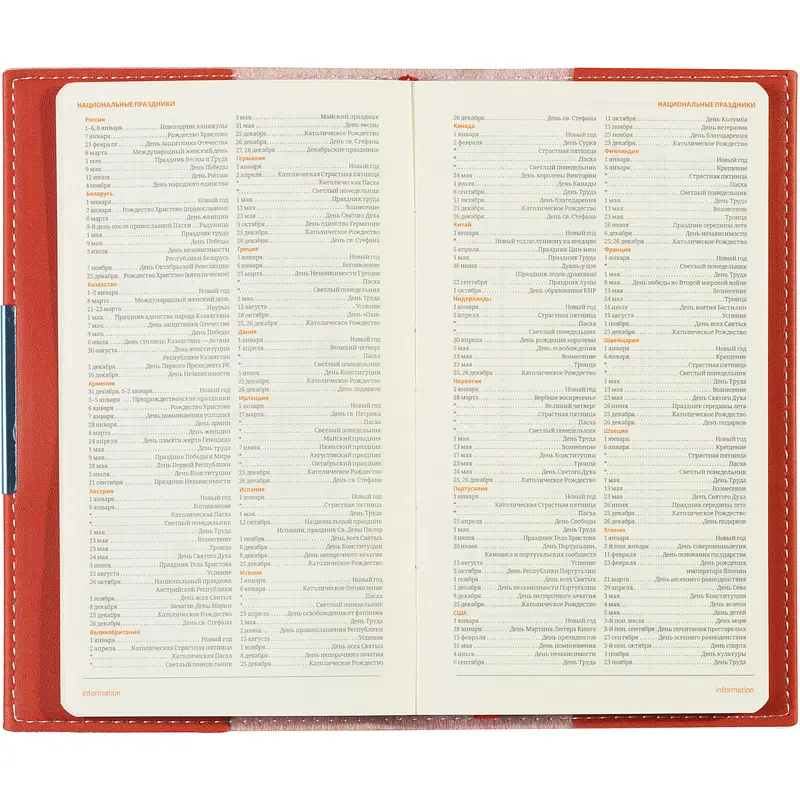 НАЦИОНАЛЬНЫЕ ПРАЗДНИКИ
Россия
1–6, 8 января Новогодние каникулы
7 января Рождество Христово
23 февраля День защитника Отечества
8 марта Международный женский день
1 мая Праздник Весны и Труда
9 мая День Победы
12 июня День России
4 ноября День народного единства
Беларусь
1 января Новый год
7 января Рождество Христово (православное)
8 марта День женщин
9-й день после православной Пасхи Радуница
1 мая Праздник труда
9 мая День Победы
3 июля День независимости
Республики Беларусь
7 ноября День Октябрьской Революции
25 декабря Рождество Христово (католическое)
Казахстан
1–2 января Новый год
8 марта Международный женский день
21–23 марта Наурыз
1 мая Праздник единства народа Казахстана
7 мая День защитника Отечества
9 мая День Победы
6 июля День столицы Казахстана — Астана
30 августа День конституции
Республики Казахстан
1 декабря День Первого Президента РК
16 декабря День Независимости
Армения
31 декабря, 1–2 января Новый год
3–5 января Предрождественские праздники
6 января Рождество Христово
7 января День поминовения усопших
28 января День армии
8 марта День женщин
24 апреля День памяти жертв Геноцида
1 мая День труда
9 мая Праздник Победы и Мира
28 мая День Первой Республики
5 июля День Конституции
21 сентября Праздник Независимости
Австрия
1 января Новый год
6 января Богоявление
* Католическая Пасха
* Светлый понедельник
1 мая День Труда
13 мая Вознесение
23 мая Троица
24 мая День Святого Духа
3 июня Праздник Тела Христова
15 августа Успение
26 октября Национальный праздник
Австрийской Республики
1 ноября День всех Святых
8 декабря Зачатие Девы Марии
25 декабря Католическое Рождество
26 декабря День св. Стефана
Великобритания
1 января Новый год
2 апреля Католическая Страстная пятница
* Католическая Пасха
* Светлый понедельник
3 мая Майский праздник
31 мая День весны
25 декабря Католическое Рождество
26 декабря День св. Стефана
27, 28 декабря Декабрьские праздники
Германия
1 января Новый год
2 апреля Католическая Страстная пятница
* Католическая Пасха
* Светлый понедельник
1 мая Праздник труда
13 мая Вознесение
23 мая День Святого Духа
3 октября День единства Германии
25 декабря Католическое Рождество
26 декабря День св. Стефана
Греция
1 января Новый год
6 января Богоявление
25 марта День Независимости Греции
* Пасха
* Светлый понедельник
1 мая День Труда
15 августа Успение
28 октября День «Охи»
25, 26 декабря Католическое Рождество
Дания
1 января Новый год
1 апреля Великий четверг
* Пасха
* Светлый понедельник
5 июня День Конституции
25 декабря Католическое Рождество
26 декабря День подарков
Ирландия
1 января Новый год
17 марта День св. Патрика
* Пасха
* Светлый понедельник
* Майский праздник
7 июня Июньский праздник
* Августовский праздник
* Октябрьский праздник
25 декабря Католическое Рождество
26 декабря День св. Стефана
Испания
1 января Новый год
* Страстная пятница
1 мая День Труда
12 октября Национальный праздник
Испании, праздник Св. Девы Пилар
1 ноября День всех Святых
6 декабря День Конституции
8 декабря День непорочного зачатия
25 декабря Католическое Рождество
Италия
1 января Новый год
6 января Католическое богоявление
* Пасха
* Светлый понедельник
25 апреля День освобождения от фашизма
1 мая День Труда
2 июня День провозглашения Республики
15 августа Успение
1 ноября День всех Святых
8 декабря День непорочного зачатия
25 декабря Католическое Рождество
information
НАЦИОНАЛЬНЫЕ ПРАЗДНИКИ
26 декабря День св. Стефана
Канада
1 января Новый год
2 февраля День Сурка
* Страстная пятница
* Пасха
* Светлый понедельник
24 мая День королевы Виктории
1 июля День Канады
6 сентября День Труда
11 октября День благодарения
25 декабря Католическое Рождество
26 декабря День св. Стефана
Китай
1 января Новый год
* Новый год по лунному календарю
5 апреля Праздник Цин-мин
1 мая Праздник Труда
16 июня Дуань-у-цзе
(Праздник лодок-драконов)
22 сентября Праздник луны
1 октября День образования КНР
Нидерланды
1 января Новый год
2 апреля Страстная пятница
* Пасха
* Светлый понедельник
30 апреля День рождения королевы
5 мая День освобождения
13 мая Вознесение
23 мая Троица
25, 26 декабря Католическое Рождество
Норвегия
1 января Новый год
28 марта Вербное воскресенье
* Великий четверг
* Страстная пятница
* Пасха
* Светлый понедельник
1 мая День Труда
13 мая Вознесение
17 мая День Конституции
23 мая Троица
24 мая День Святого Духа
25, 26 декабря Католическое Рождество
Португалия
1 января Новый год
* Католическая Страстная пятница
* Пасха
25 апреля День Свободы
1 мая День Труда
3 июня Праздник Тела Христова
10 июня День Португалии,
Камоэнса и португальских сообществ
15 августа Успение
5 октября День Республики Португалии
1 ноября День всех Святых
1 декабря День независимости Португалии
8 декабря День непорочного зачатия
25 декабря Католическое Рождество
США
1 января Новый год
18 января День Мартина Лютера Кинга
15 февраля День президентов
31 мая День поминовения
4 июля День независимости
6 сентября День Труда
11 октября День Колумба
11 ноября День ветеранов
25 ноября День благодарения
25 декабря Католическое Рождество
Финляндия
1 января Новый год
6 января Крещение
* Страстная пятница
* Пасха
* Светлый понедельник
1 мая День Труда
13 мая Вознесение
23 мая Троица
26 июня Праздник середины лета
6 декабря День независимости
25, 26 декабря Католическое Рождество
Франция
1 января Новый год
* Светлый понедельник
1 мая День Труда
8 мая День победы во Второй мировой войне
13 мая Вознесение
24 мая Троица
14 июля День взятия Бастилии
15 августа Успение
1 ноября День всех Святых
25 декабря Католическое Рождество
Швейцария
1 января Новый год
6 января Крещение
* Страстная пятница
* Светлый понедельник
1 мая День Труда
13 мая Вознесение
23 мая День Святого Духа
26 июня Праздник середины лета
25 декабря Католическое Рождество
26 декабря День подарков
Швеция
1 января Новый год
6 января Крещение
* Страстная пятница
* Пасха
* Светлый понедельник
1 мая День Труда
13 мая Вознесение
23 мая День Святого Духа
26 июня Праздник середины лета
25 декабря Католическое Рождество
26 декабря День подарков
Япония
1 января Новый год
2-й пон. января День совершеннолетия
11 февраля День основания государства
23 февраля День рождения
императора Японии
21 марта День весеннего равноденствия
29 апреля День Сёва
3 мая День Конституции
4 мая День зелени
5 мая День детей
3-й пон. июля День моря
3-й пон. сентября День почитания престарелых
23 сентября День осеннего равноденствия
2-й пон. октября День спорта
3 ноября День культуры
23 ноября День Труда
information